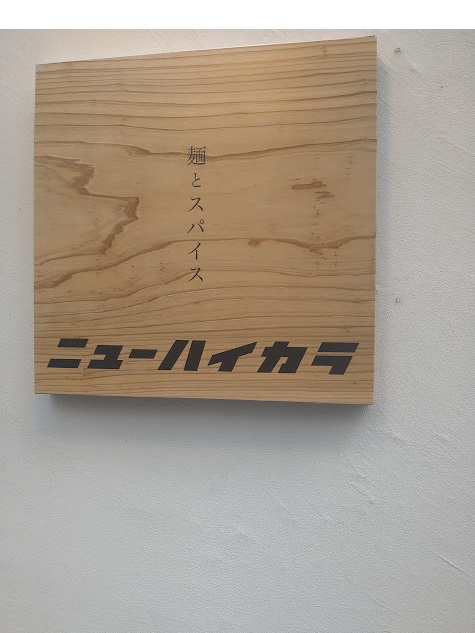 麺とスパイス
ニューハイカラ